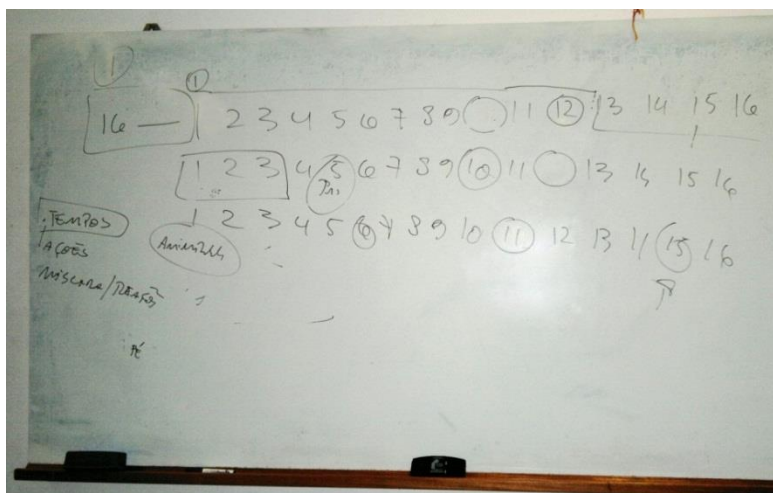 1
1
16 — 1 2 3 4 5 6 7 8 9 11 12 13 14 15 16
1 2 3 4 5 6 7 8 9 10 11 13 14 15 16
1 2 3 4 5 6 7 8 9 10 11 12 13 11 15 16
.TEMPOS
AÇÕES